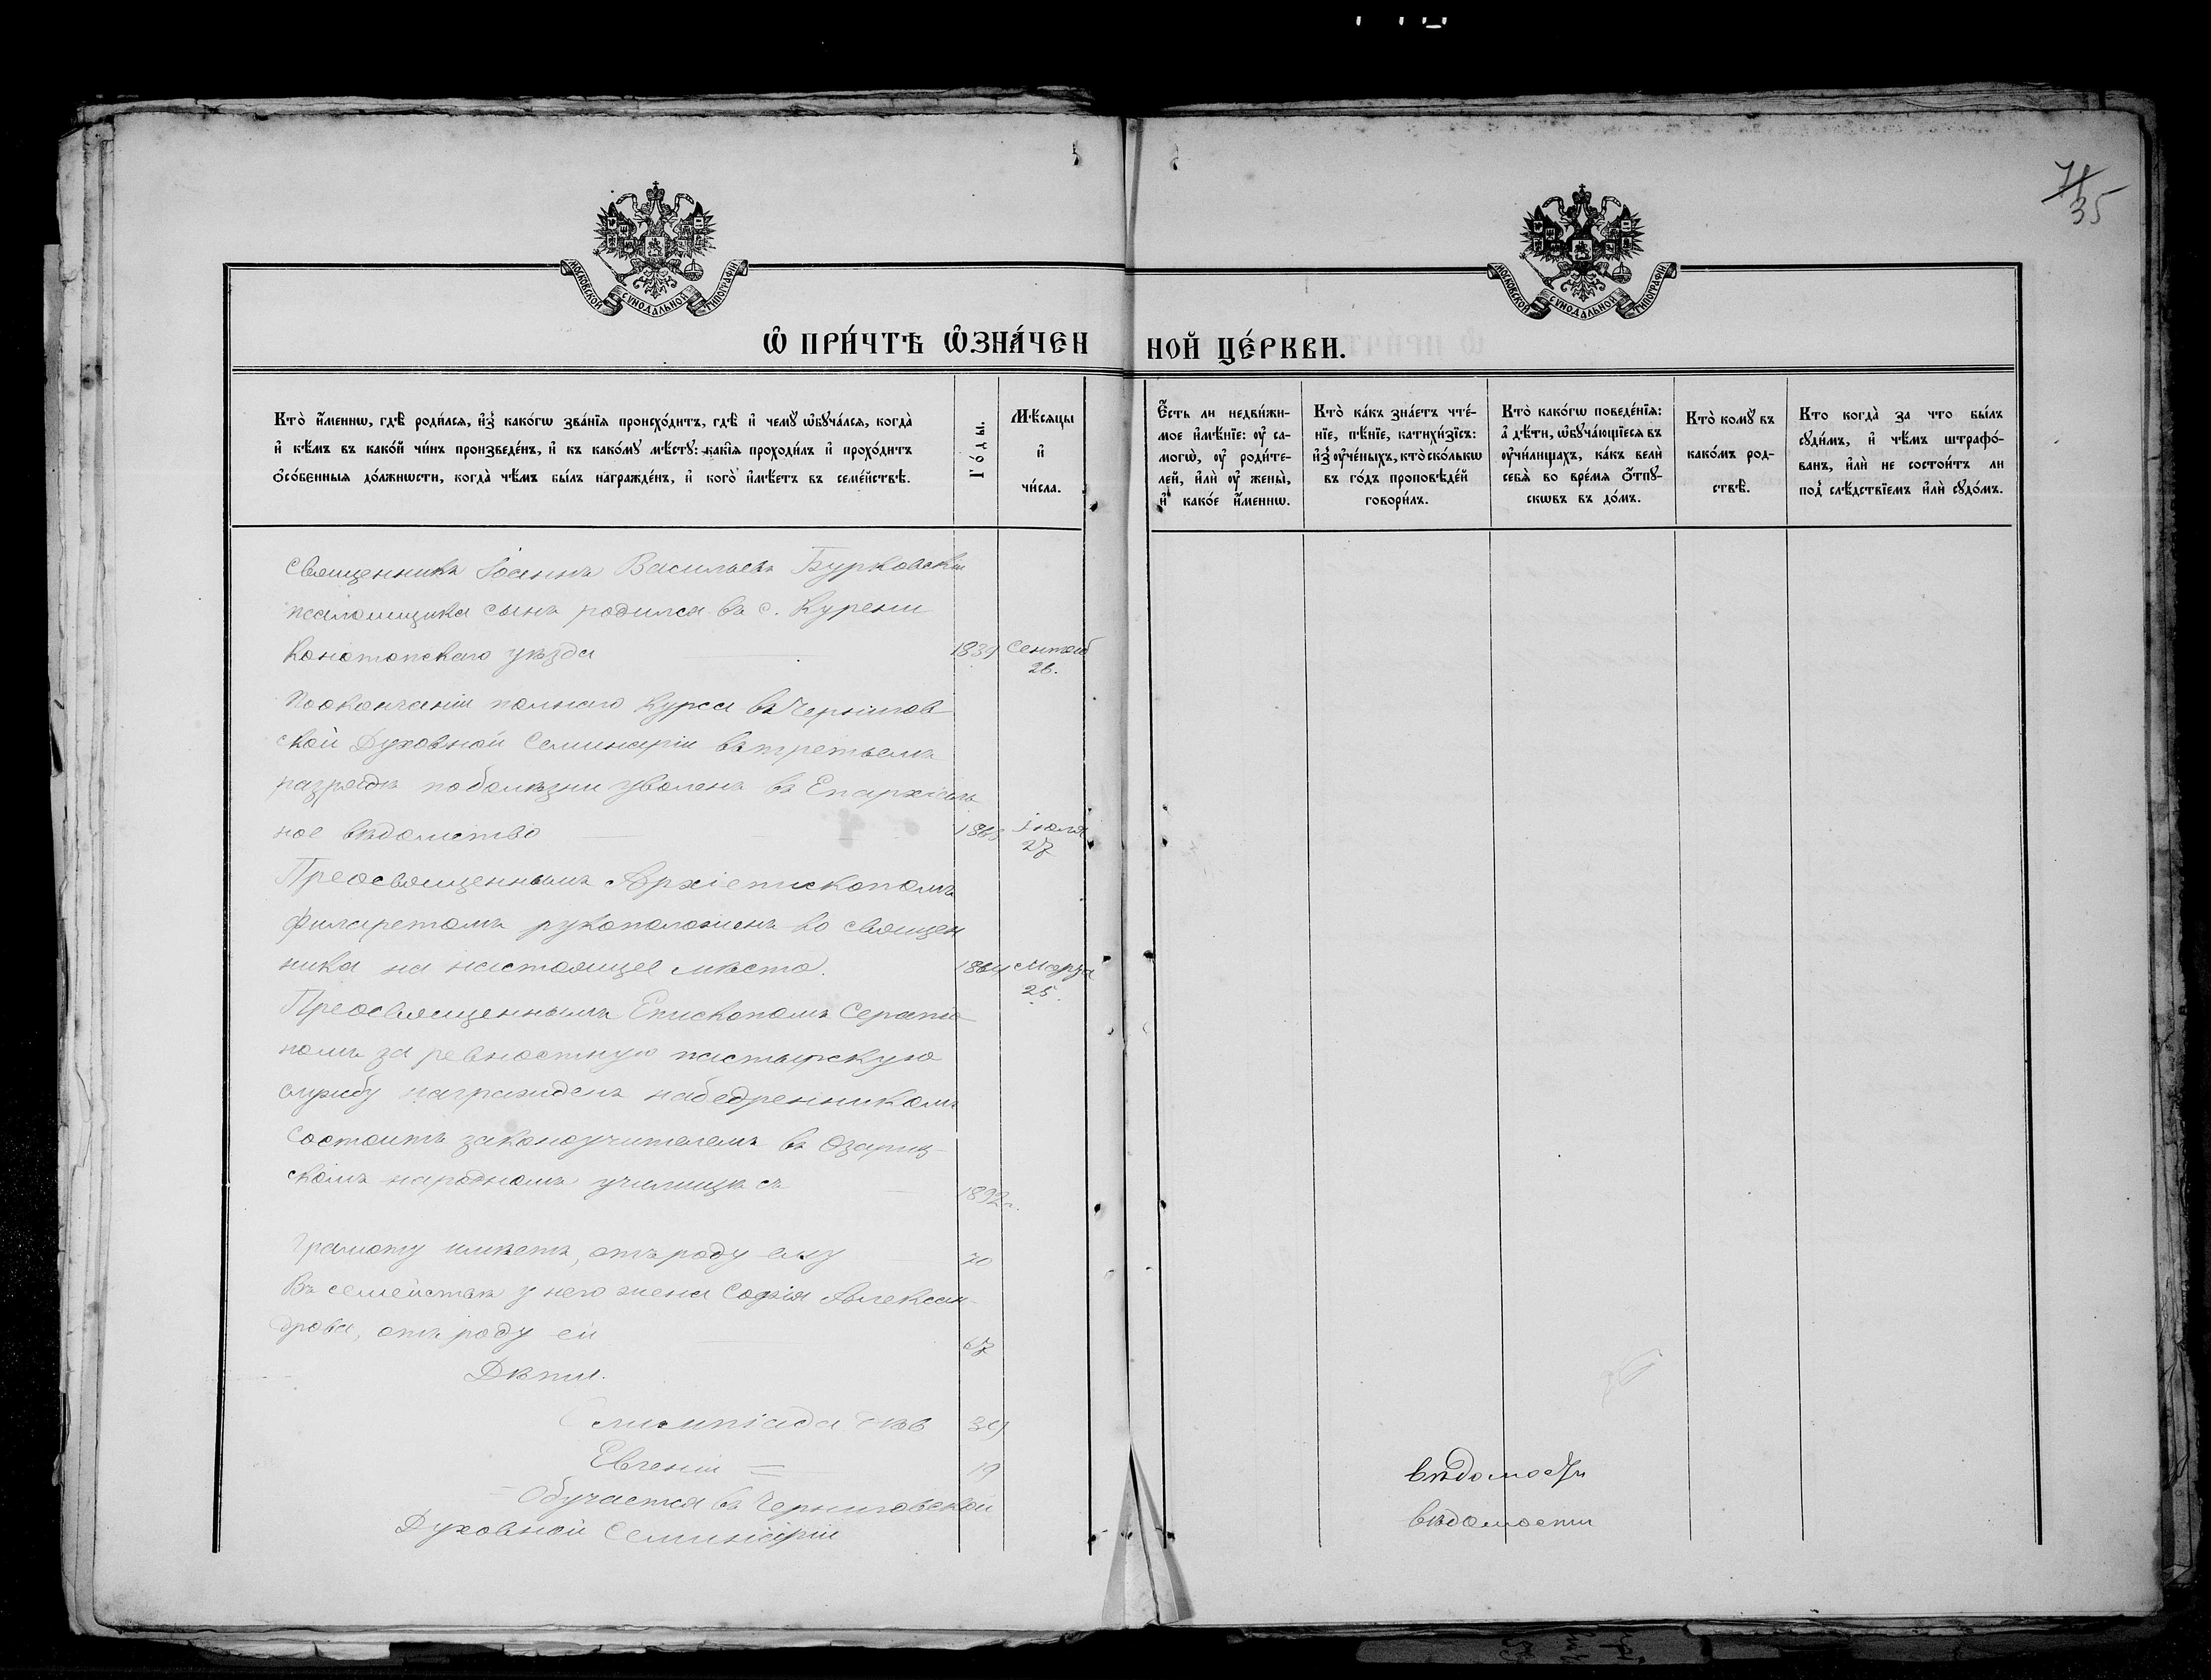 71
35
МОСКОВСКОЙ СѴНОДАЛЬНОЙ ТИПОГРАФІИ
МОСКОВСКОЙ СѴНОДАЛЬНОЙ ТИПОГРАФІИ
Ѽ ПРИ́ЧТѢ ѼЗНА́ЧЕН НОЙ ЦЕ́РКВИ.
Кто̀ и҆́меннѡ, гдѣ̀ роди́лсѧ, и҆з̾ како́гѡ зва́нїѧ происхо́дитъ, гдѣ̀ и҆ чемꙋ̀ ѡ҆бꙋча́лсѧ, когда̀
и҆ кѣ́мъ въ како́й чи́нъ произведе́нъ, и҆ къ како́мꙋ мѣ́стꙋ: какі̑ѧ проходи́лъ и҆ прохо́дитъ
ѻ҆со́бенныѧ до́лжнѡсти, когда̀ чѣ́мъ бы́лъ награжде́нъ, и҆ кого̀ и҆мѣ́етъ въ семе́йствѣ.
Го́ды.
Мѣ́сѧцы
и҆
чи́сла.
Є҆́сть ли недви́жи-
мое и҆мѣ́нїе: ᲂу҆ са-
могѡ̀, ᲂу҆ роди́те-
лей, и҆лѝ ᲂу҆ жены̀,
и҆ како́е и҆́меннѡ.
Кто̀ ка́къ зна́етъ чте́-
нїе, пѣ́нїе, катихи́зїсъ:
и҆з̾ ᲂу҆че́ныхъ, кто̀ ско́лькѡ
въ го́дъ проповѣ́дей
говори́лъ.
Кто̀ како́гѡ поведе́нїѧ:
а҆ дѣ́ти, ѡ҆бꙋча́ющїесѧ въ
ᲂу҆чи́лищахъ, ка́къ велѝ
себѧ̀ во вре́мѧ ѿпꙋ-
скѡвъ въ до́мъ.
Кто̀ комꙋ̀ въ
како́мъ род-
ствѣ̀.
Кто когда̀ за что бы́лъ
сꙋди́мъ, и҆ чѣ́мъ штрафо́-
ванъ, и҆лѝ не состои́тъ ли
под̾ слѣ́дствїемъ и҆лѝ сꙋдо́мъ.
Священникъ Іоаннъ Васильевъ Бурковскій
псаломщика сынъ родился въ с. Курени
Конотопскаго уѣзда 1839 Сентяб
26.
По окончаніи полнаго курса въ Чернигов
ской Духовной Семинаріи въ третьемъ
разрядѣ по болѣзни уволенъ въ Епархіаль
ное вѣдомство 1863 Іюля
27
Преосвященнымъ Архіепископомъ
Филаретомъ рукоположенъ во священ
ника на настоящее мѣсто. 1864 Марта
25.
Преосвященнымъ Епископомъ Серапіо
номъ за ревностную пастырскую
службу награжденъ набедренникомъ
Состоитъ законоучителемъ въ Озариц-
скомъ народномъ училищѣ съ 1892 г.
Грамоту имѣетъ, отъ роду ему 70
Въ семействѣ у него жена Софія Алексан-
дрова, отъ роду ей 67
Дѣти.
Олимпіада дѣв 39
Евгеній = 19
Обучается въ Черниговской
Духовной Семинаріи
вѣдомости
вѣдомости